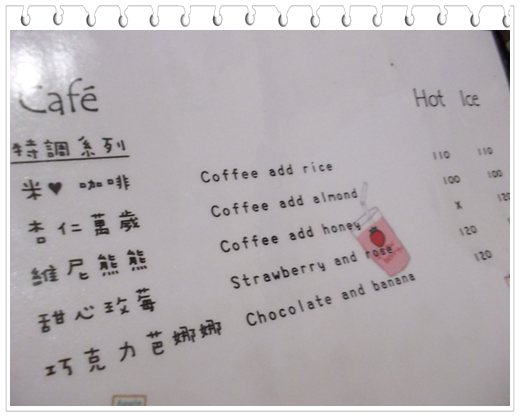 Café Hot Ice
特調系列
米♥ 咖啡 Coffee add rice 110 110
杏仁萬歲 Coffee add almond 100 100
維尼熊熊 Coffee add honey X 120
甜心玫莓 Strawberry and rose 120
巧克力芭娜娜 Chocolate and banana 120
Apple